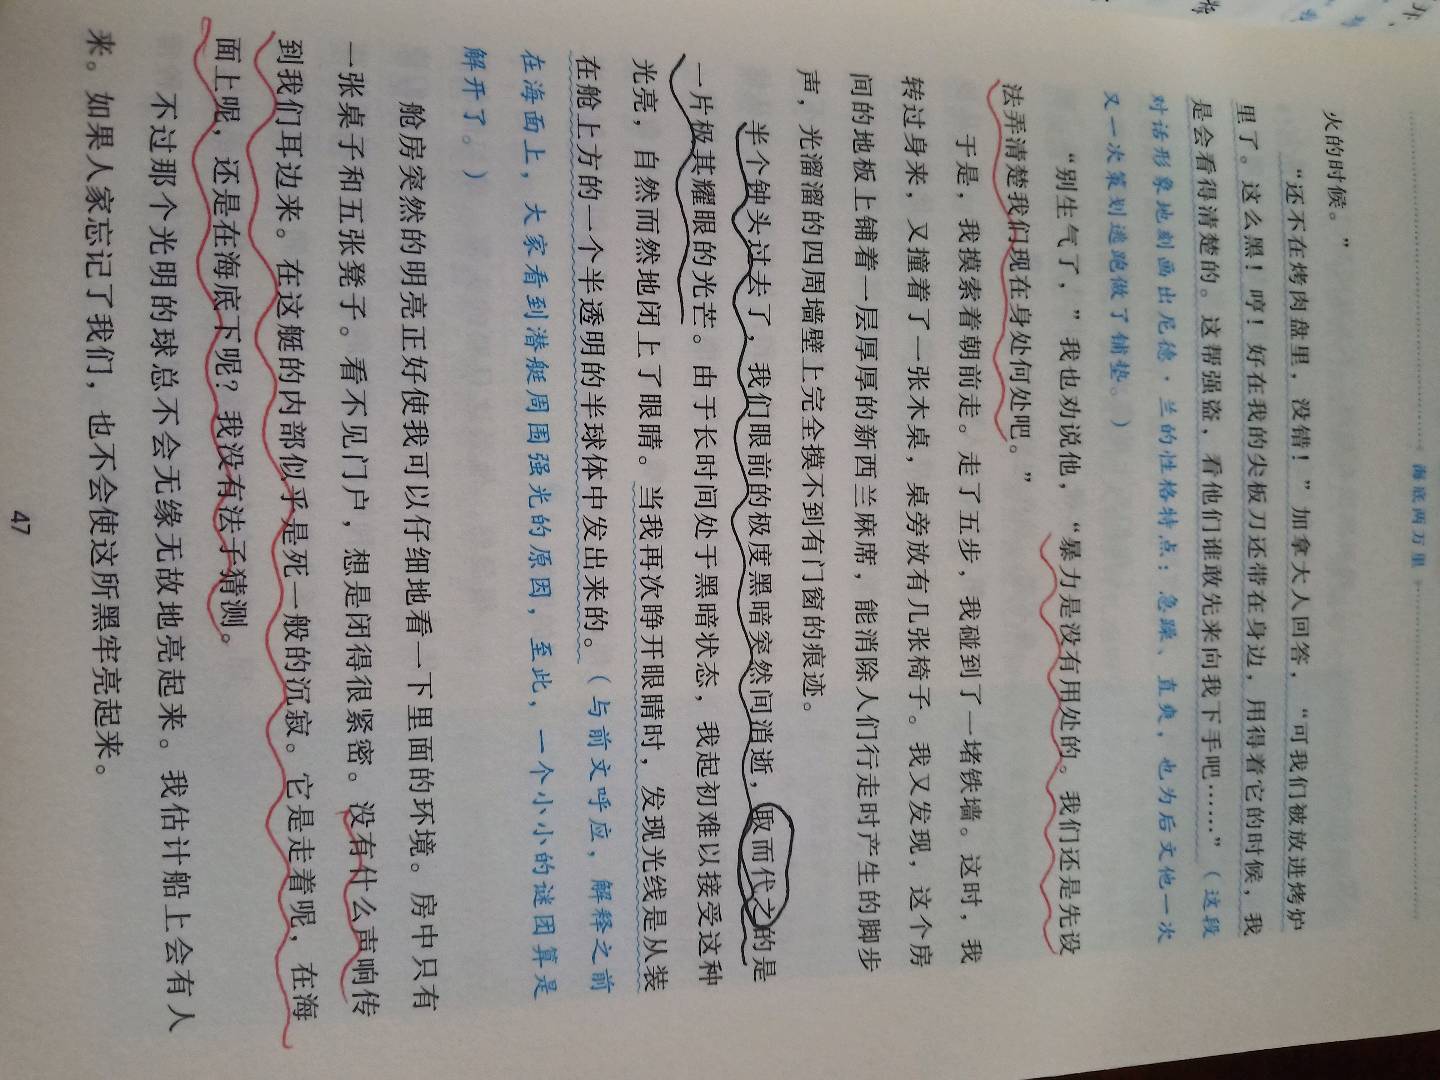 海底两万里
火的时候。”
“还不在烤肉盘里，没错！”加拿大人回答，“可我们被放进烤炉
里了。这么黑！哼！好在我的尖板刀还带在身边，用得着它的时候，我
是会看得清楚的。这帮强盗，看他们谁敢先来向我下手吧……”（这段
对话形象地刻画出尼德·兰的性格特点：急躁、直爽，也为后文他一次
又一次策划逃跑做了铺垫。）
“别生气了，”我也劝说他，“暴力是没有用处的。我们还是先设
法弄清楚我们现在身处何处吧。”
于是，我摸索着朝前走。走了五步，我碰到了一堵铁墙。这时，我
转过身来，又撞着了一张木桌，桌旁放有几张椅子。我又发现，这个房
间的地板上铺着一层厚厚的新西兰麻席，能消除人们行走时产生的脚步
声，光溜溜的四周墙壁上完全摸不到有门窗的痕迹。
半个钟头过去了，我们眼前的极度黑暗突然间消逝，取而代之的是
一片极其耀眼的光芒。由于长时间处于黑暗状态，我起初难以接受这种
光亮，自然而然地闭上了眼睛。当我再次睁开眼睛时，发现光线是从装
在舱上方的一个半透明的半球体中发出来的。（与前文呼应，解释之前
在海面上，大家看到潜艇周围强光的原因，至此，一个小小的谜团算是
解开了。）
舱房突然的明亮正好使我可以仔细地看一下里面的环境。房中只有
一张桌子和五张凳子。看不见门户，想是闭得很紧密。没有什么声响传
到我们耳边来。在这艇的内部似乎是死一般的沉寂。它是走着呢，在海
面上呢，还是在海底下呢？我没有法子猜测。
不过那个光明的球总不会无缘无故地亮起来。我估计船上会有人
来。如果人家忘记了我们，也不会使这所黑牢亮起来。
47